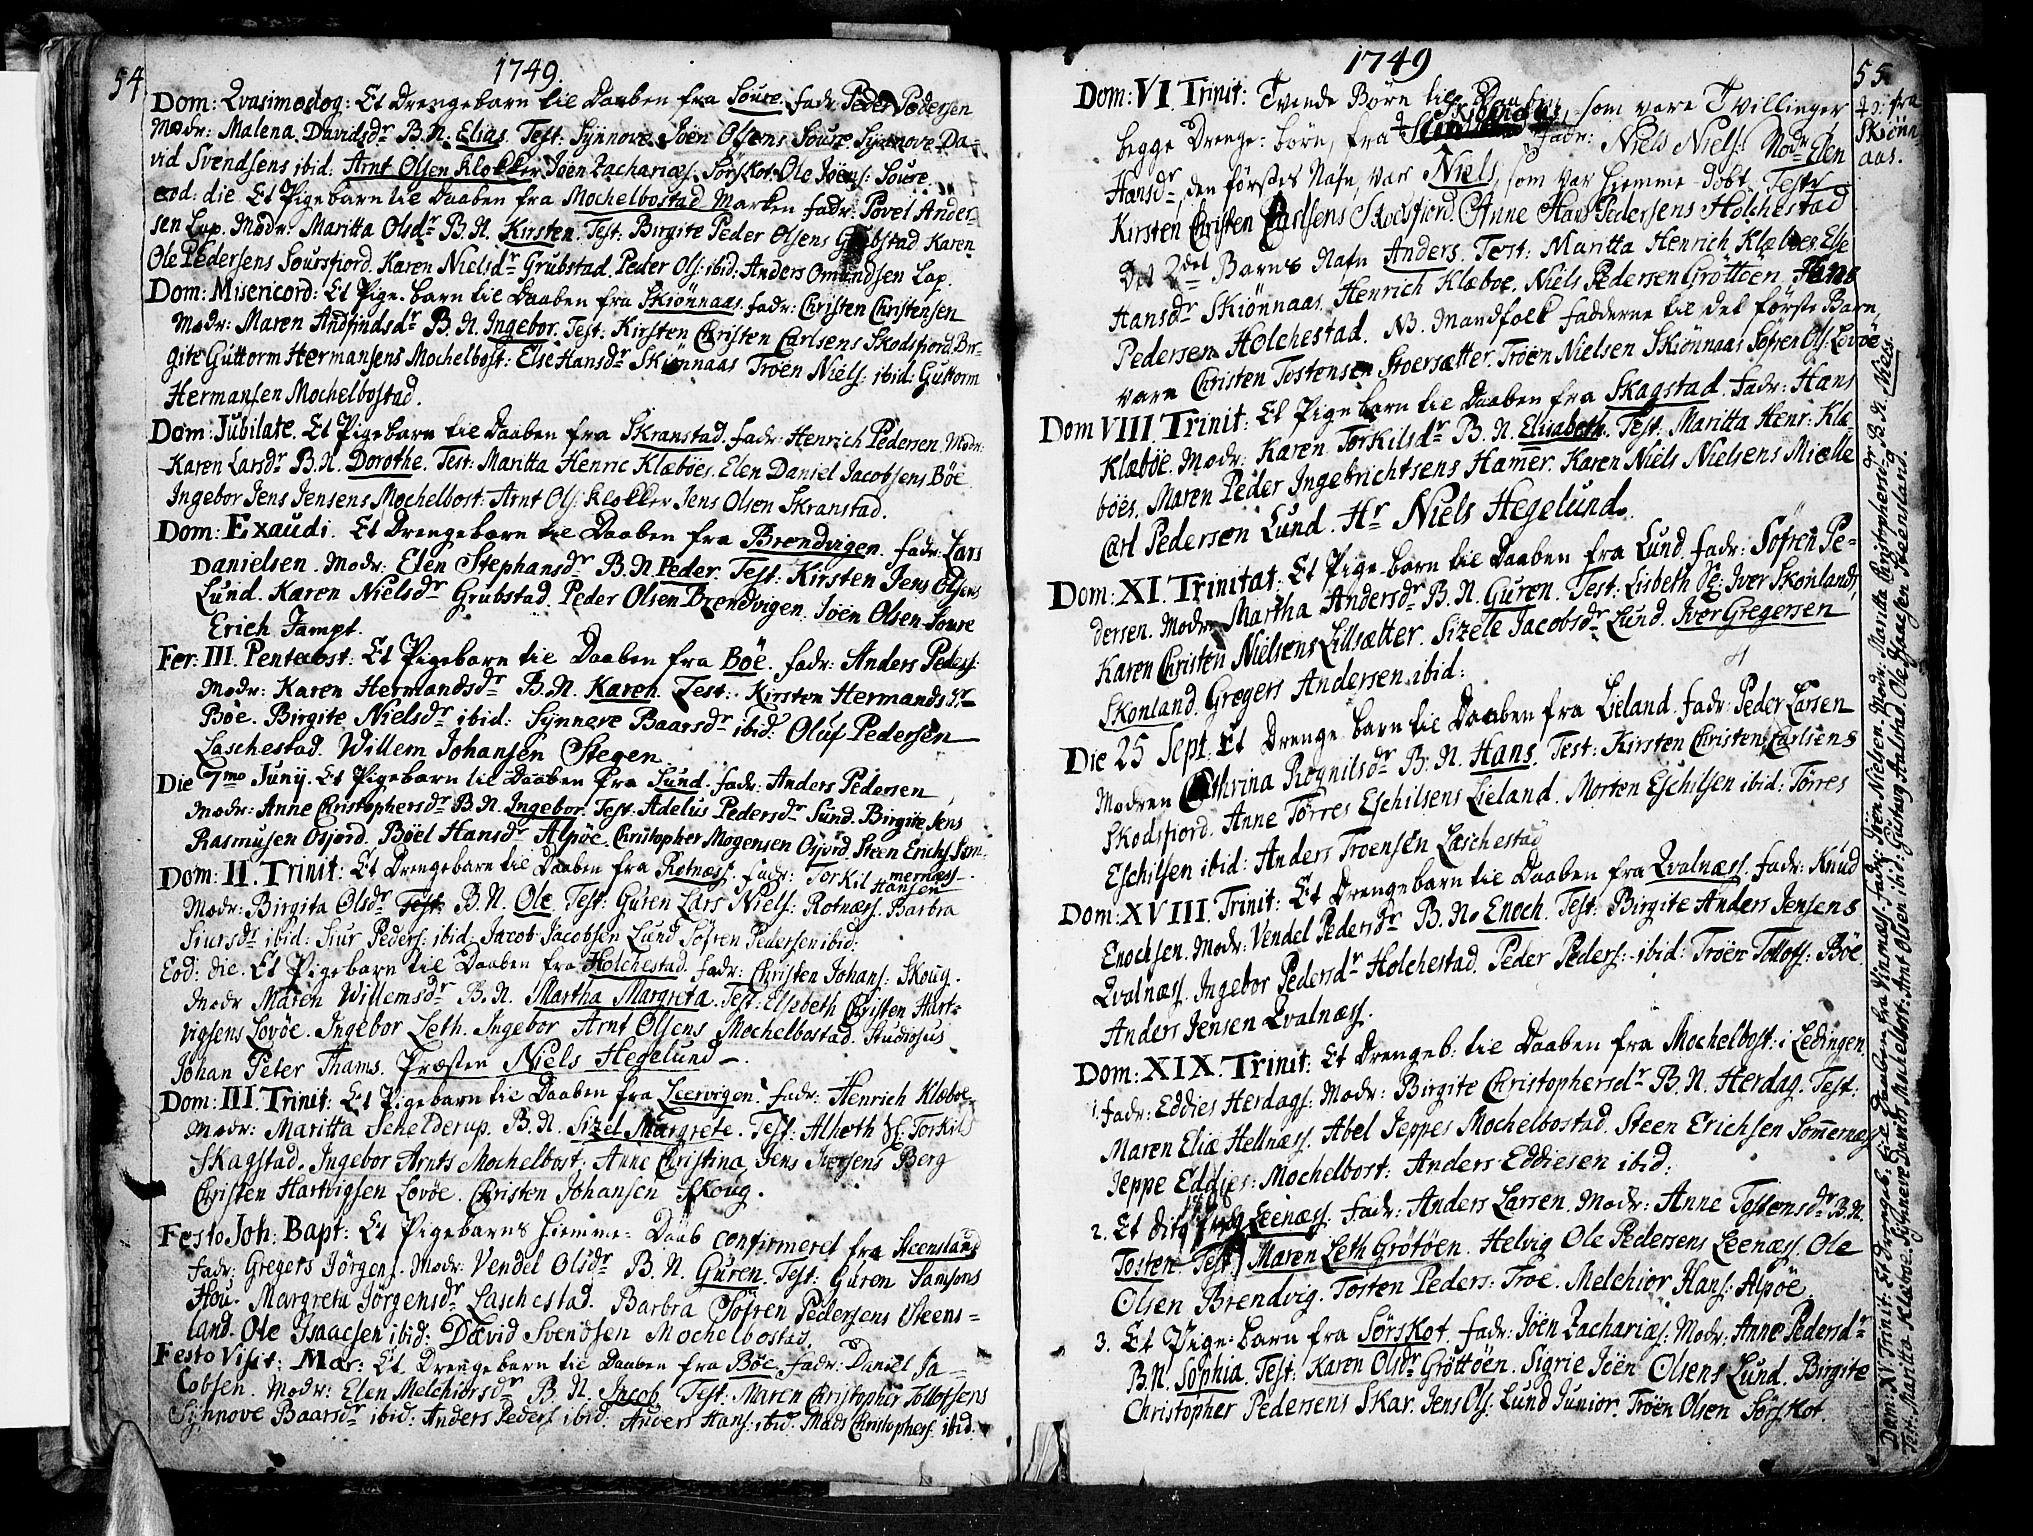 54.
1749.
Dom: Qvasimodog: Et Drengebarn til Daaben fra Soure. fadr: Peder Pedersen
Modr: Malena Davidsdr B.N. Elias. Test: Synnove Joen Olsens Soure. Synnove Da-
vid Svendsens ibid: Arnt Olsen Klokker Jöen Zachariæs. Sörskot. Ole Jöens: Soure.
eod: die. Et Pige barn til Daaben fra Mochelbostad Marken fadr: Povel Ander-
sen Lap. Modr: Maritta Olsdr B.N. Kirsten. Test: Birgite Peder Olsens Grubstad Karen
Ole Pedersens Soursfiord. Karen Nielsdr Grubstad. Peder Ols: ibid: Anders Omundsen Lap.
Dom: Misericord: Et Pige-barn til Daaben fra Skiönnaas. fadr: Christen Christensen
Modr: Maren Andfindsdr B.N. Ingebor. Test: Kirsten Christen Carlsens Skodsfiord. Bir-
gite Guttorm Hermansens Mochelbost: Else Hansdr Skionnaas Tröen Niels: ibid: Guttorm
Hermansen Mochelbostad.
Dom: Jubilate. Et Pigebarn til Daaben fra Skranstad. fadr: Henrich Pedersen. Modr:
Karen Larsdr B.N. Dorothe. Test: Maritta Henric Klæböes. Elen Daniel Jacobsens Böe
Ingebor Jens Jensens Mochelbost: Arnt Ols: Klokker Jens Olsen Skranstad.
Dom: Exaudi. Et Drengebarn til Daaben fra Brendvigen. fadr: Lars
Danielsen. Modr: Elen Stephansdr B.N. Peder. Test: Kirsten Jens Olsens
Lund. Karen Nielsdr Grubstad. Peder Olsen Brendvigen. Joen Olsen Soure
Erich Jampt.
Fer: III. Pentecost: Et Pigebarn til Daaben fra Böe. fadr: Anders Peders:
Modr: Karen Hermandsdr B.N. Karen. Test: Kirsten Hermandsdr
Böe. Birgite Nielsdr ibid: Synneve Baarsdr ibid: Oluf Pedersen
Laschestad. Willem Johansen Stegen.
Die 7mo Junij. Et Pigebarn til Daaben fra Lund. fadr: Anders Pedersen
Modr: Anne Christophersdr B.N. Ingebor. Test: Adelus Pedersdr Lund. Birgite Jens
Rasmusen Osjord. Böel Hansdr Alpöe. Christopher Mogensen Osjord. Steen Erichs Som-
mernæss.
Dom: II. Trinit: Et Drengebarn til Daaben fra Rotnæss. fadr: Torkil Hansen
Modr: Birgita Olsdr Test: B.N. Ole. Test: Guren Lars Niels: Rotnæss. Barbra
Siursdr ibid: Siur Peders: ibid: Jacob Jacobsen Lund Sofren Pedersen ibid:
Eod: die. Et Pigebarn til Daaben fra Holchestad. fadr: Christen Johans: Skoug.
Modr Maren Willemsdr B.N. Martha Margreta. Test: Elsebeth Christen Hart-
vigsens Lovöe. Ingebor Leth. Ingebor Arnt Olsens Mochelbostad. Studiosus
Johan Peter Thams. Præsten Niels Hegelund.
Dom: III. Trinit: Et Pigebarn til Daaben fra Leervigen. fadr: Henrich Klæboe.
Modr: Maritta Schelderup. B.N. Sizel Margrete. Test: Alheth Torkil
Skagstad. Ingebor Arnts Mochelbost: Anne Christina Jens Iversens Berg
Christen Hartvigsen Lovöe. Christen Johansen Skoug.
Festo Joh: Bapt: Et Pigebarns Hiemme-Daab confirmeret fra Steensland
fadr: Gregers Jörgens. Modr: Vendel Olsdr B.N. Guren. Test: Guren Samsons
Hou. Margreta Jörgensdr Laschestad. Barbra Sofren Pedersens Steens-
land. Ole Isaacsen ibid: David Svendsen Mochelbostad.
Festo Visit: Mar: Et Drengebarn til Daaben fra Böe. fadr: Daniel Ja-
cobsen. Modr: Elen Melchiorsdr B.N. Jacob. Test: Maren Christopher Tollofsens
Synnove Baarsdr ibid: Anders Peders ibid: Anders Hans: ibid: Mads Christophers: ibid.
1749
55.
Dom: VI. Trinit: Tvende Börn til Daaben, som vare Tvillinger
begge Drenge-börn, fra Fadr: Niels Niels: Modr Elen
Hansdr, den förstes Nafn, var Niels, som var hiemme-döbt. Test:
Kirsten Christen Carlsens Skodsfjord. Anne Hans Pedersens Holchestad
Det 2det Barns Nafn Anders. Test: Maritta Henrich Klæboes. Else
Hansdr Skiönnaas. Henrich Klæboe. Niels Pedersen Gröttöen. Hans
Pedersen Holchestad. NB. Mandfolk fadderne til det förste Barn,
vare Christen Tostensen Stoersætter. Tröen Nielsen Skiönnaas Sofren Ols: Lovöe
Dom VIII. Trinit: Et Pigebarn til Daaben fra Skagstad. fadr: Hans
Klæböe. Modr: Karen Torkilsdr B.N. Elisabeth. Test: Maritta Henr: Klæ-
böes. Maren Peder Ingebrichtsens Hamer. Karen Niels Nielsens Mielle
Carl Pedersen Lund. Hr Niels Hegelund.
Dom: XI. Trinitat: Et Pige-barn til Daaben fra Lund. fadr: Söfren Pe-
dersen. Modr Martha Andersdr B.N. Guren. Test: Lisbeth Sr: Iver Skonland,
Karen Christen Nielsens Lillsætter. Sizele Jacobsdr Lund. Iver Gregersen
Skonland. Gregers Andersen ibid:
Die 25 Sept. Et Drenge barn til Daaben fra Lieland. fadr: Peder Larsen
Modren Cathrina Rognilsdr B.N. Hans. Test: Kirsten Christen Carlsens
Skodsfiord. Anne Törres Eschilsens Lieland. Morten Eschilsen ibid: Törres
Eschilsen ibid: Anders Troensen Laschestad
Dom: XVIII. Trinit: Et Drengebarn til Daaben fra Qvalnæss. fadr: Knud
Enochsen. Modr: Vendel Pedersdr B.N. Enoch. Test: Birgite Anders Jensens
Qvalnæss. Ingebor Pedersdr Holchestad. Peder Peders: ibid: Tröen Tollofs: Böe
Anders Jensen Qvalnæss.
Dom: XIX. Trinit: Et Drengeb: til Daaben fra Mochelbost: i Ledingen.
1. fadr: Eddies Herdags: Modr: Birgite Christophersdr B.N. Herdag. Test:
Maren Eliæ Hellnæss. Abel Jeppes Mochelbostad. Steen Erichsen Sommernæs
Jeppe Eddies: Mochelbost: Anders Eddiesen ibid:
2. Et dito fra Leenæss. fadr: Anders Larsen. Modr: Anne Tostensdr B.N.
Tosten. Test: Maren Leth Grötöen. Helvig Ole Pedersens Leenæss. Ole
Olsen Brendvig. Torsten Peders: Troe. Melchior Hans: Alpöe.
3. Et Pige-barn fra Sörskot. fadr: Jöen Zachariæs: Modr: Anne Pedersdr
B.N. Sophia. Test: Karen Olsdr Gröttöen. Sigrie Jöen Olsens Lund. Birgite
Christopher Pedersens Skar. Jens Ols: Lund Junior. Tröen Olsen Sörskot.
fra
Skiönn-
aas.
Dom: XV Trinit: Et Drengeb: til Daaben fra Vinnæss. fadr: Jöen Nielsen. Modr: Maritta Christophersdr B.N. Niels.
Test: Maritta Klæboe. Synneve Davids Mochelbost: Arnt Olsen ibid: Gustav Aalstad. Ole Isaacsen Steensland.